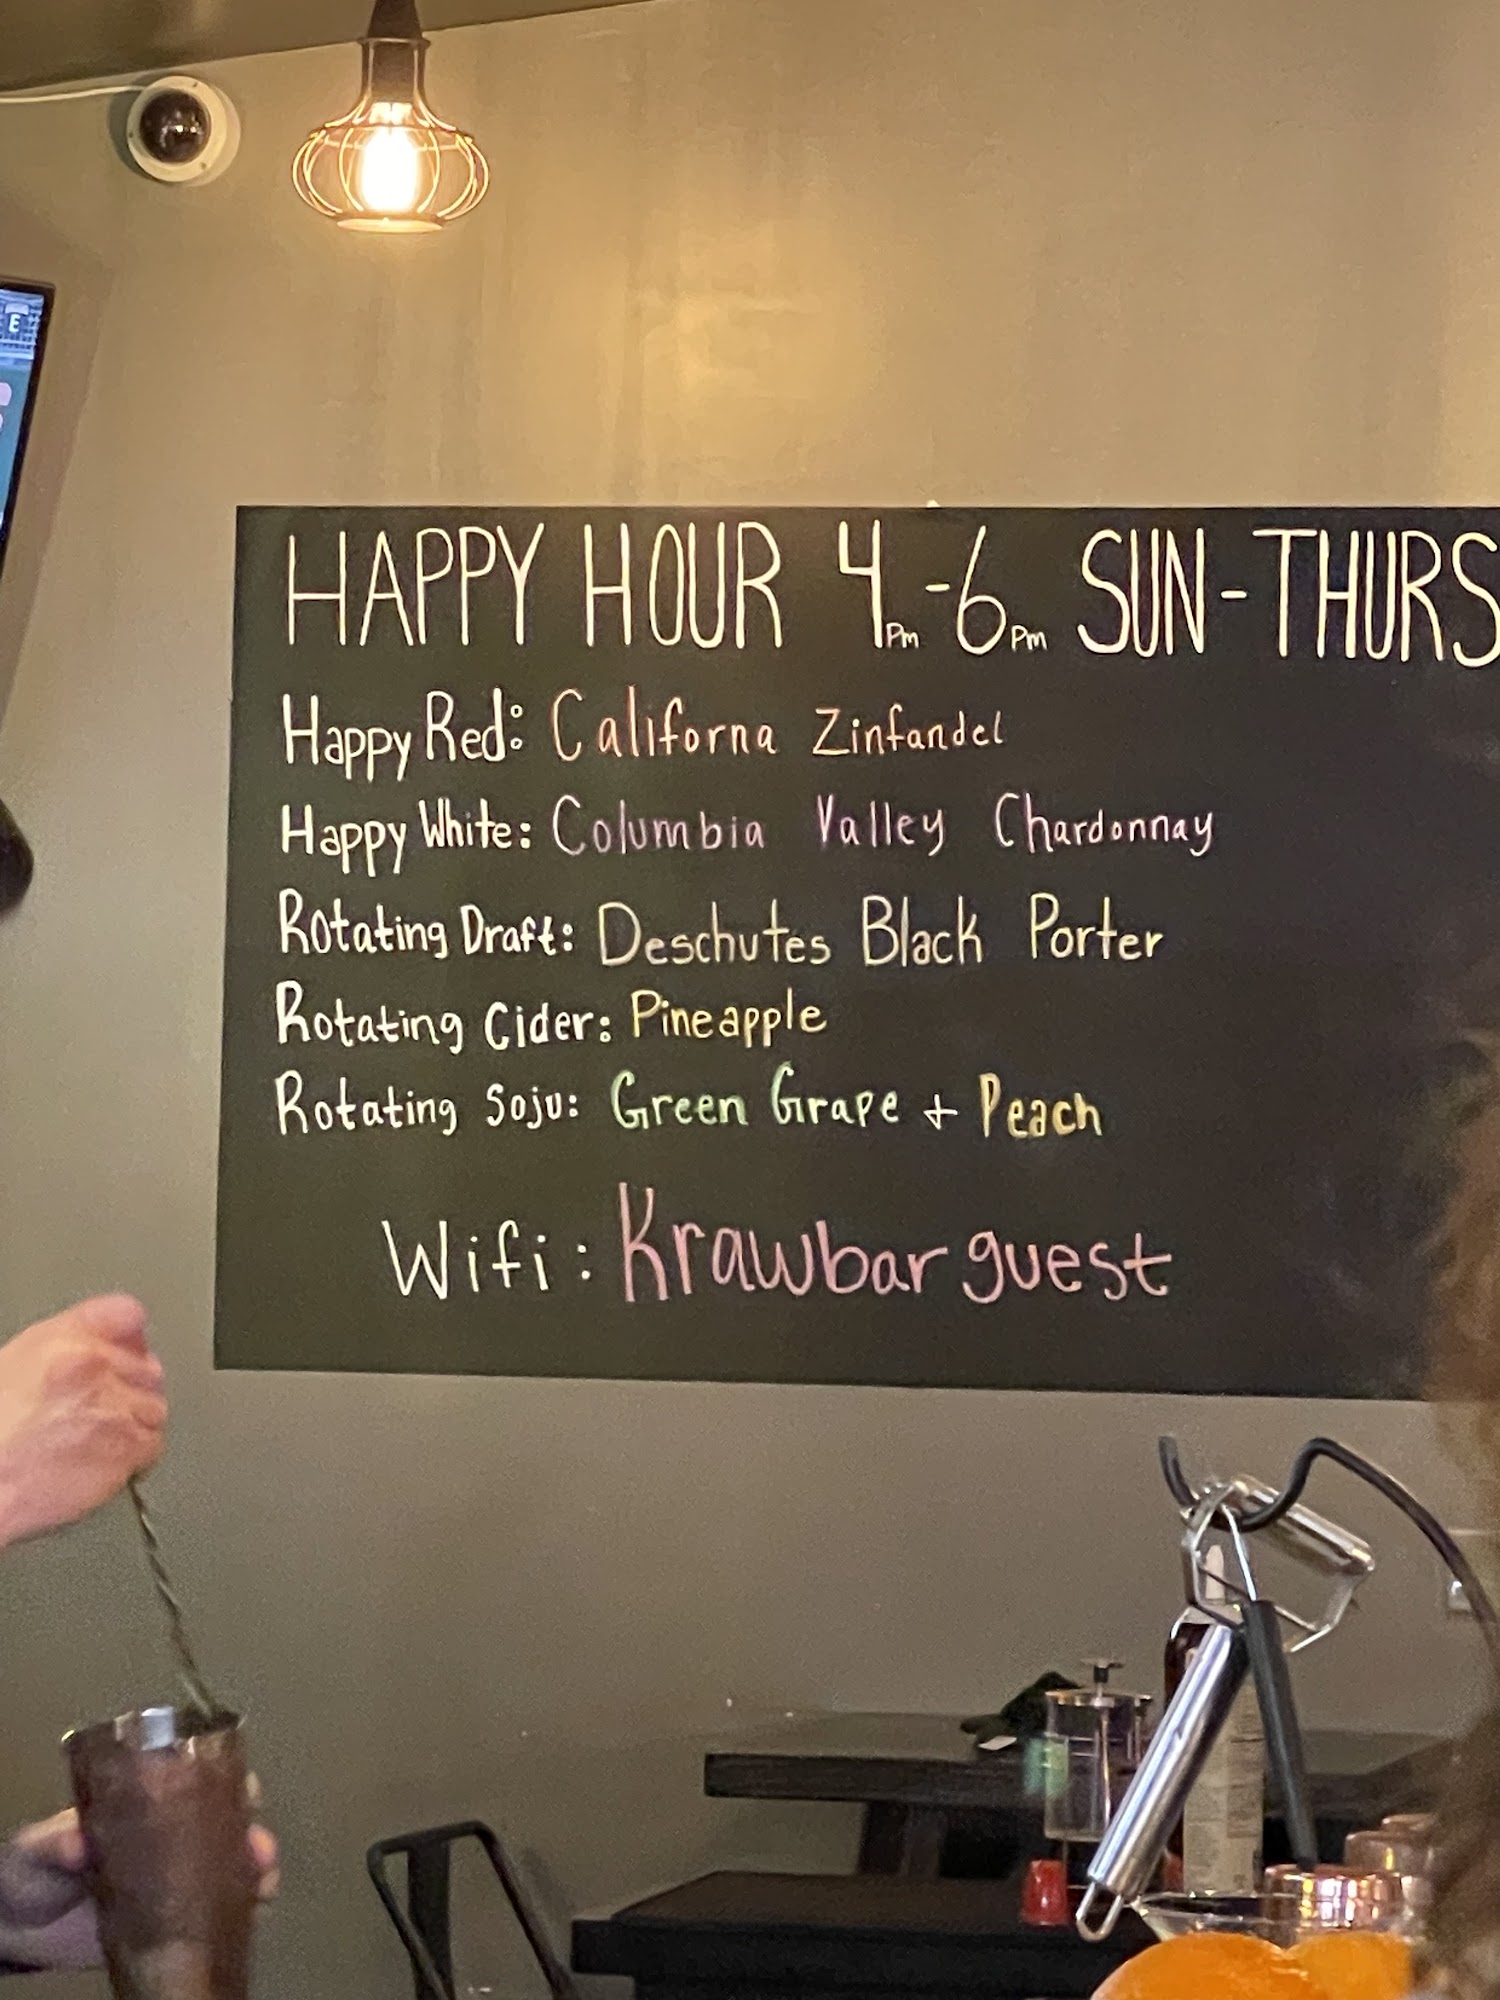 E
HAPPY HOUR 4pm-6pm SUN-THURS
Happy Red: Californa Zinfandel
Happy White: Columbia Valley Chardonnay
Rotating Draft: Deschutes Black Porter
Rotating Cider: Pineapple
Rotating Soju: Green Grape + Peach
Wifi: Krawbar guest